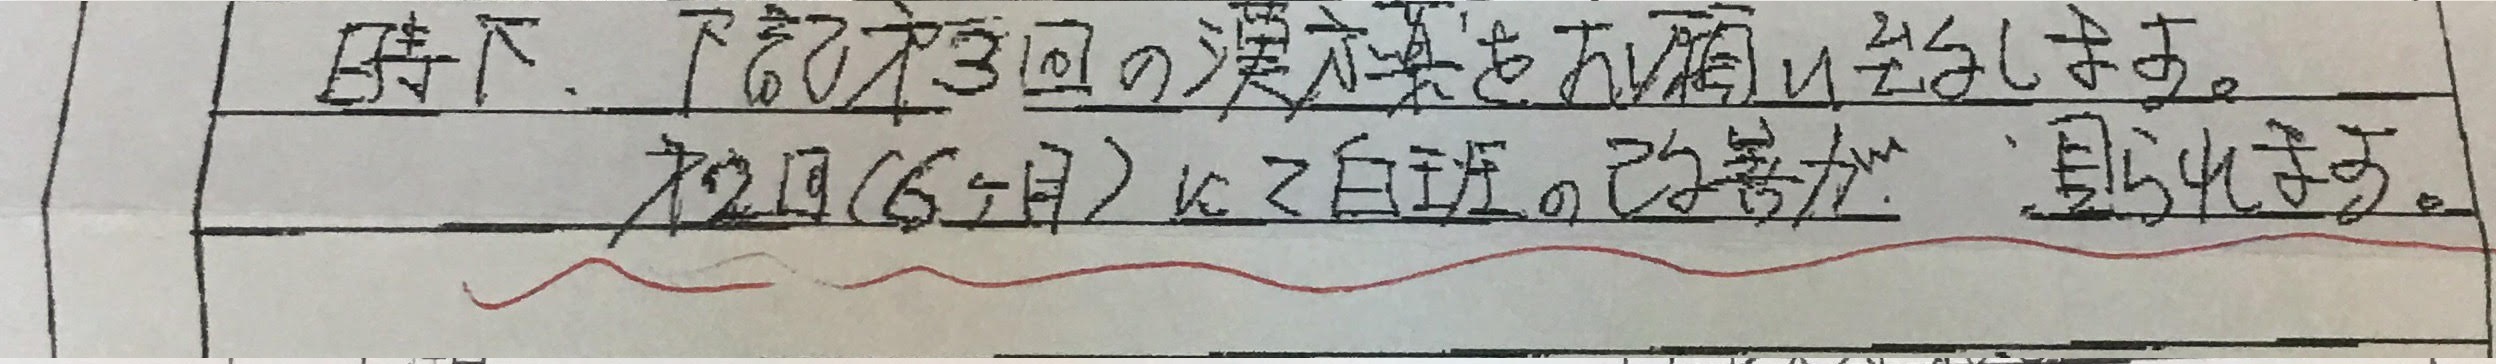 時下、下記才3回の漢方薬をお願い致します。
才2回(6ヶ月)にて白斑の改善が見られます。